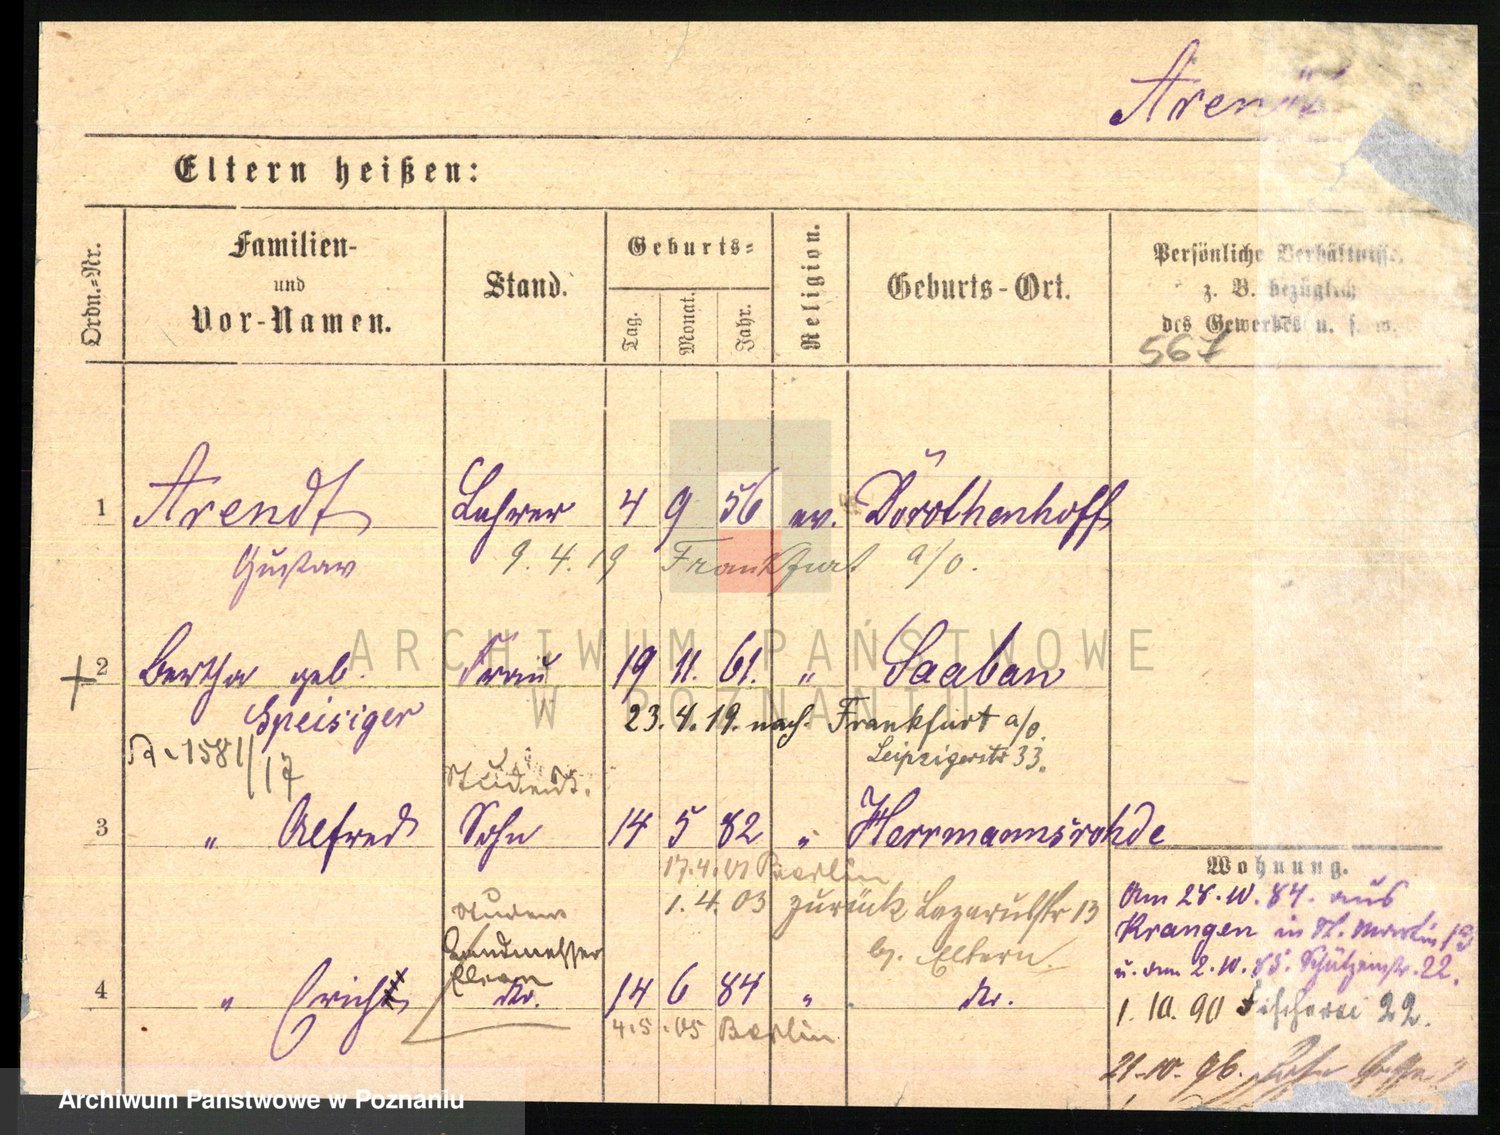 Arendt
Eltern heißen:
Ordn.-Nr.
Familien-
und
Vor-Namen.
Stand.
Geburts-
Tag.
Monat.
Jahr.
Religion.
Geburts-Ort.
Persönliche Verhältnisse,
z. B. bezüglich
des Gewerbes u. s. w.
567
1 Arendt Lehrer 4 9 56 ev. Dorothenhoff
Gustav 9. 4. 19 Frankfurt a/O.
2 Bertha geb. Frau 19 11. 61. " Saaban
Speisiger 23. 4. 19. nach Frankfurt a/O.
1581/17 Leipzigerstr 33.
Student.
3 " Alfred Sohn 14 5 82 " Herrmannsrohde
17.4.01 Berlin
1. 4. 03 zurück Lazarusstr 13
b. Eltern
Student
Landmesser
Eleve
4 " Erich do. 14 6 84 " do.
4.5.05 Berlin
Wohnung.
Am 28. 10. 84. aus
Krangen in St. Martin
u. am 2. 10. 85. Schützenstr. 22.
1. 10. 90 Fischerei 22.
21. 10. 96.
ARCHIWUM PAŃSTWOWE
W POZNANIU
Archiwum Państwowe w Poznaniu